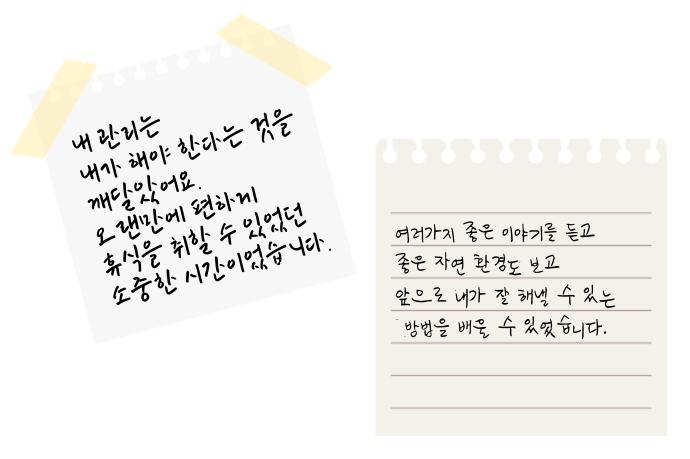 내 관리는
내가 해야 한다는 것을
깨달았어요.
오랜만에 편하게
휴식을 취할 수 있었던
소중한 시간이었습니다.
여러가지 좋은 이야기를 듣고
좋은 자연 환경도 보고
앞으로 내가 잘 해낼 수 있는
방법을 배울 수 있었습니다.